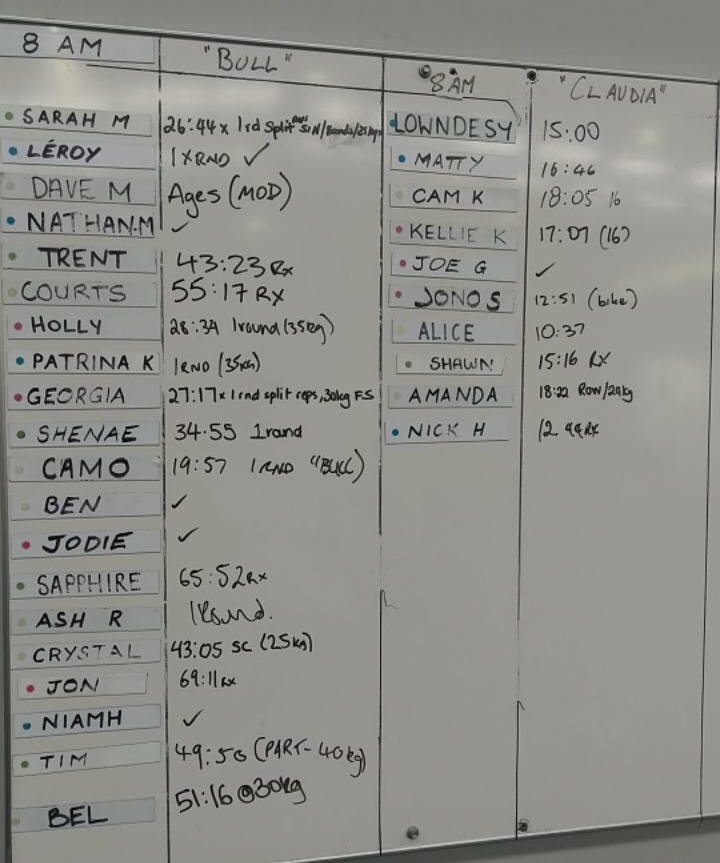 8 AM "BULL"
SARAH M 26:44 x 1rd Split
LÉROY 1 x RND ✓
DAVE M Ages (MOD)
NATHAN.M ✓
TRENT 43:23 Rx
COURTS 55:17 RX
HOLLY 28:34 1round (35kg)
PATRINA K 1RND (35kg)
GEORGIA 27:17 x 1rnd split reps, 30kg FS
SHENAE 34.55 1round
CAMO 19:57 1RND "BULL)
BEN ✓
JODIE ✓
SAPPHIRE 65:52 Rx
ASH R 1Round.
CRYSTAL 43:05 SC (25kg)
JON 69:11 Rx
NIAMH ✓
TIM 49:50 (PART-40kg)
BEL 51:16 @30kg
8AM "CLAUDIA"
LOWNDESY 15:00
MATTY 16:46
CAM K 18:05 16
KELLIE K 17:07 (16)
JOE G ✓
JONO S 12:51 (bike)
ALICE 10:37
SHAWN 15:16 RX
AMANDA 18:22 Row/24kg
NICK H 12 44 Rx